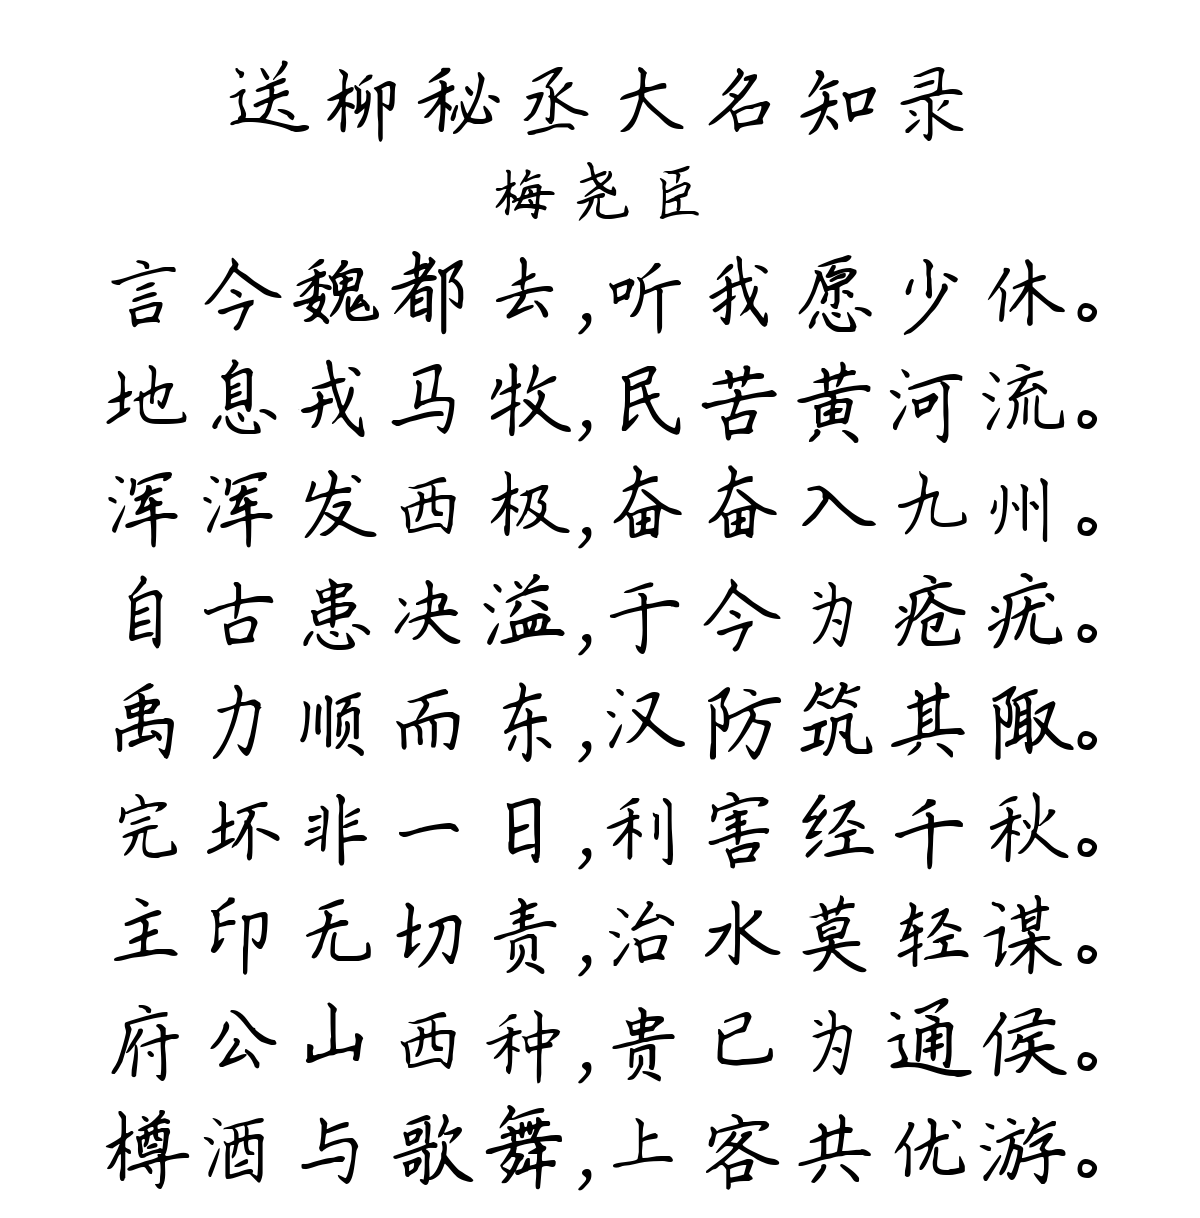 送柳秘丞大名知录
梅尧臣
言今魏都去,听我愿少休。
地息戎马牧,民苦黄河流。
浑浑发西极,奋奋入九州。
自古患决溢,于今为疮疣。
禹力顺而东,汉防筑其陬。
完坏非一日,利害经千秋。
主印无切责,治水莫轻谋。
府公山西种,贵已为通侯。
樽酒与歌舞,上客共优游。